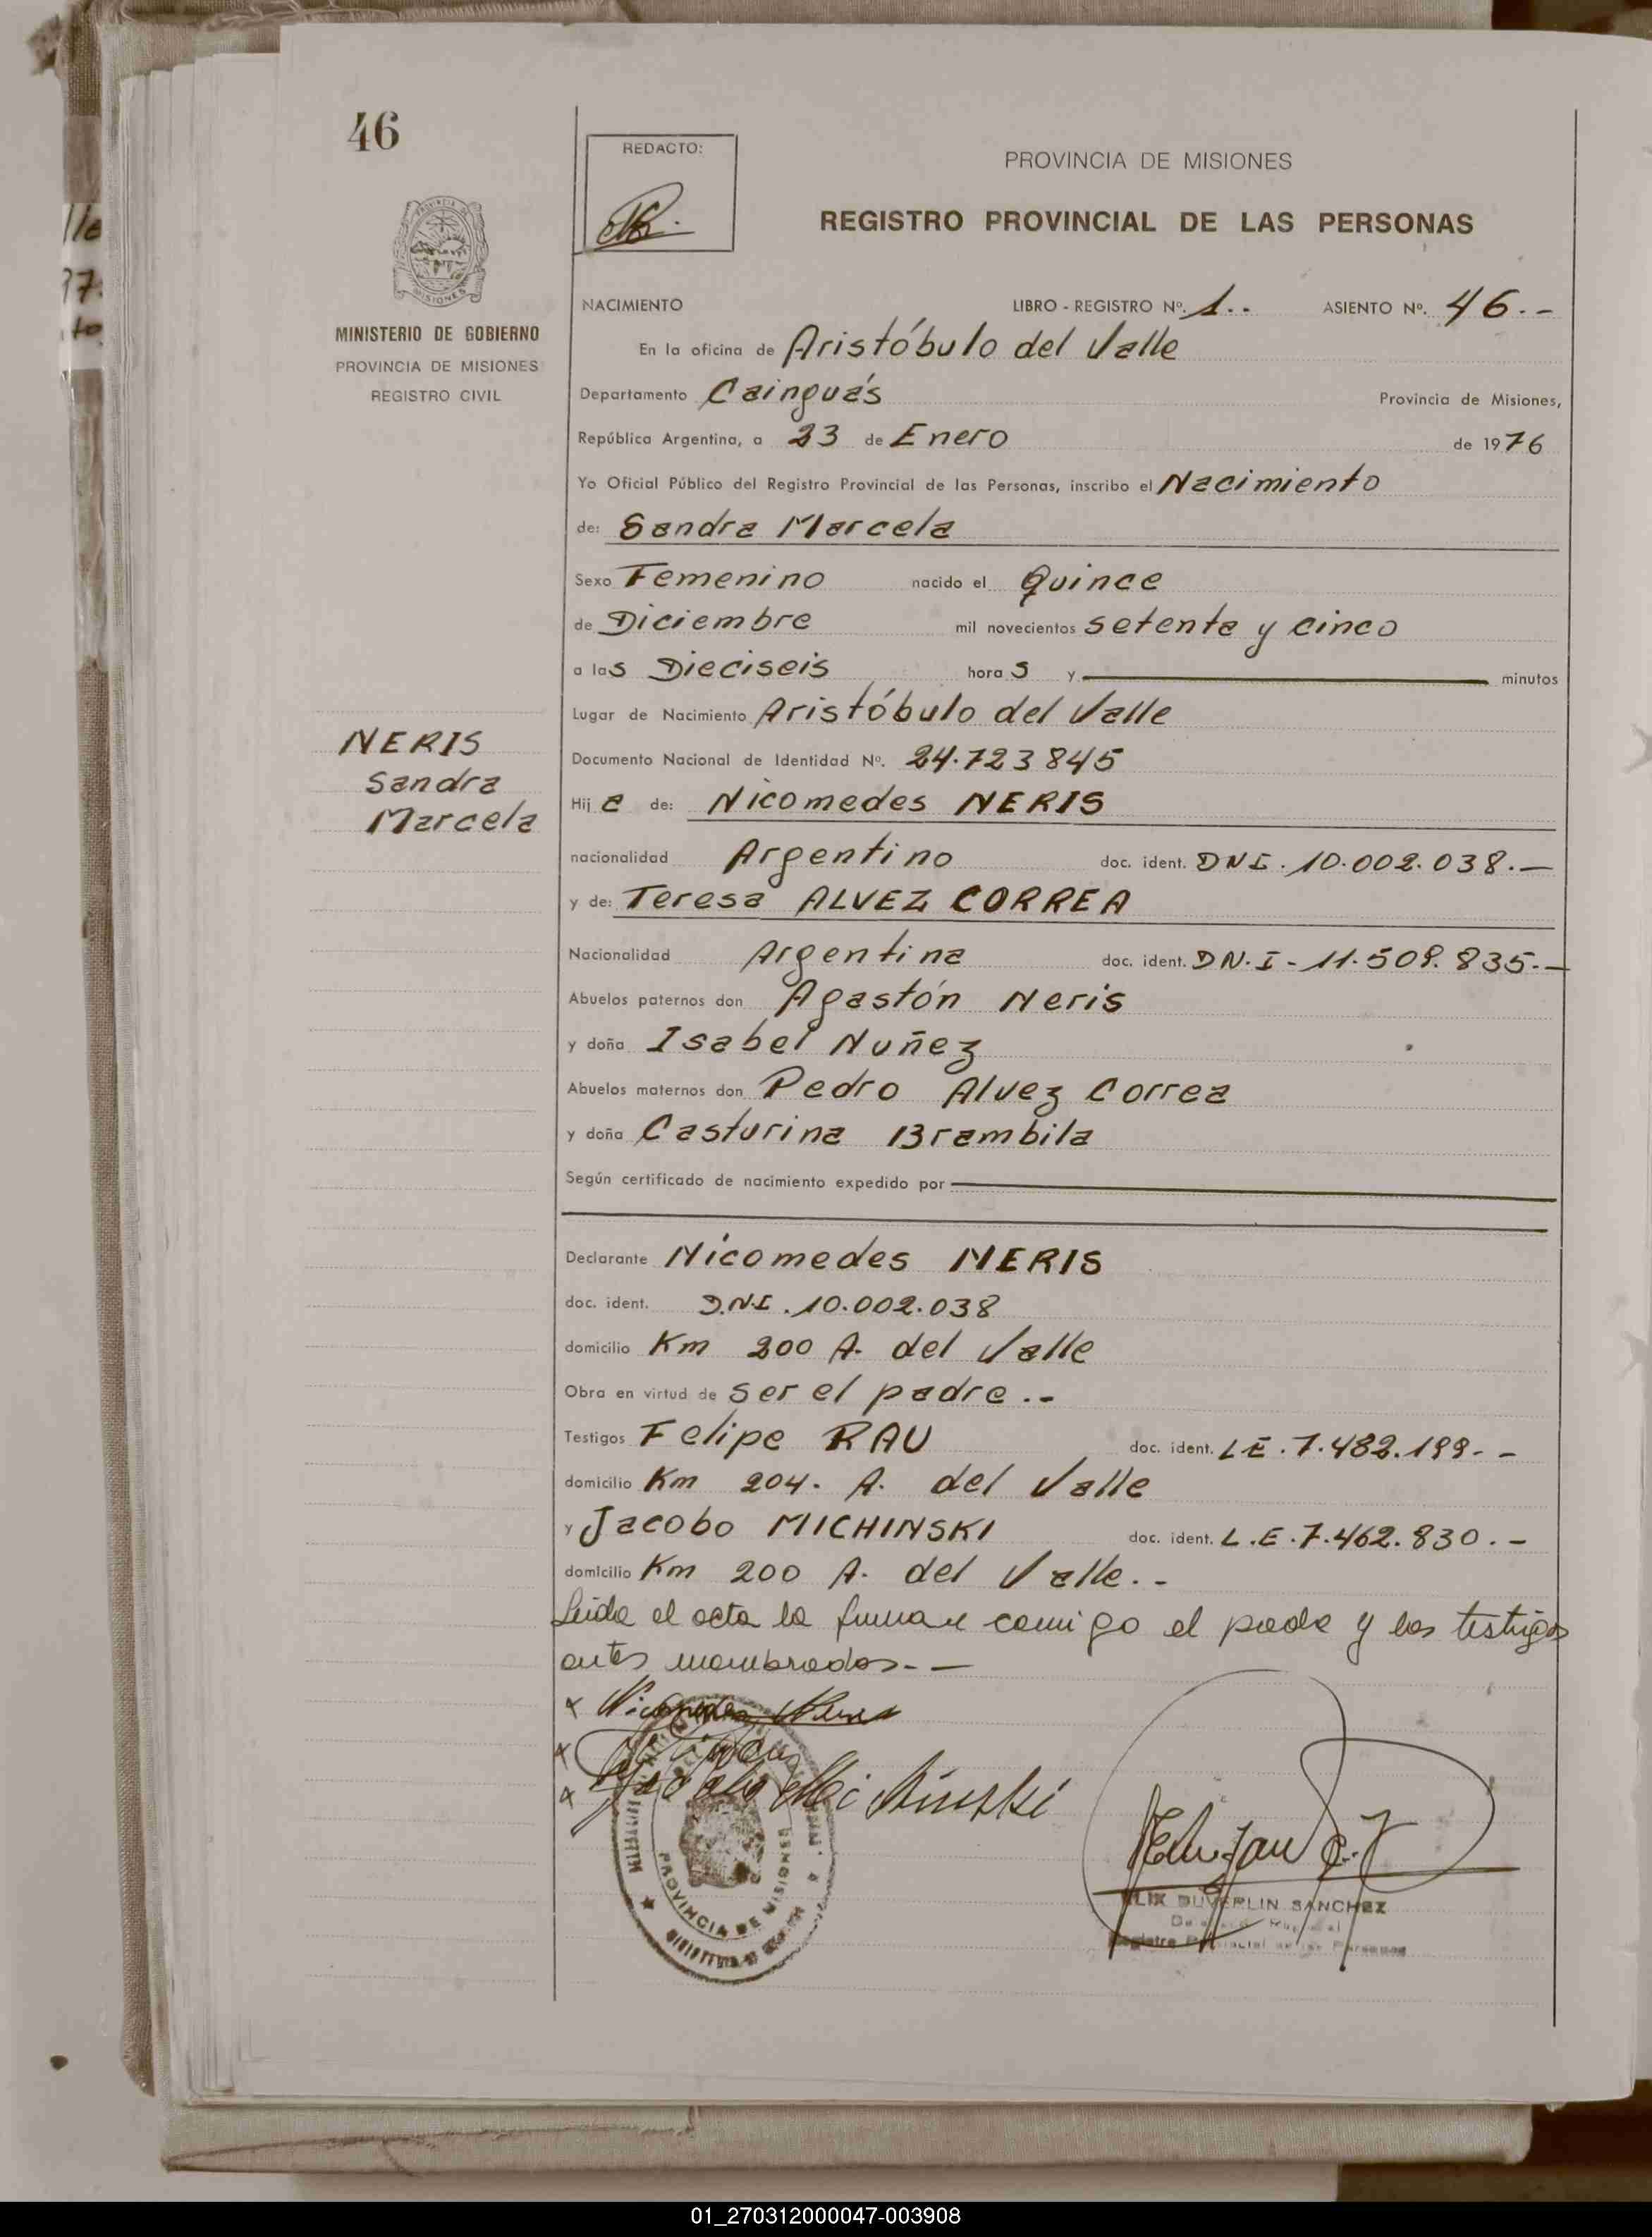 46
REDACTO:
PROVINCIA DE MISIONES
REGISTRO PROVINCIAL DE LAS PERSONAS
MISIONES
MINISTERIO DE GOBIERNO
PROVINCIA DE MISIONES
REGISTRO CIVIL
NACIMIENTO LIBRO - REGISTRO Nº. 1.. ASIENTO Nº. 46.-
En la oficina de Aristóbulo del Valle
Departamento Cainguás Provincia de Misiones,
República Argentina, a 23 de Enero de 1976
Yo Oficial Público del Registro Provincial de las Personas, inscribo el Nacimiento
de: Sandra Marcela
Sexo Femenino nacido el Quince
de Diciembre mil novecientos setenta y cinco
a las Dieciseis horas y minutos
Lugar de Nacimiento Aristóbulo del Valle
NERIS
Sandra
Marcela
Documento Nacional de Identidad Nº. 24.723845
Hija de: Nicomedes NERIS
nacionalidad Argentino doc. ident. DNI. 10.002.038.-
y de: Teresa ALVEZ CORREA
Nacionalidad Argentina doc. ident. DN.I - 11.509.835.-
Abuelos paternos don Agastón Neris
y doña Isabel Nuñez
Abuelos maternos don Pedro Alvez Correa
y doña Casturina Brambila
Según certificado de nacimiento expedido por
Declarante Nicomedes NERIS
doc. ident. D.N.I. 10.002.038
domicilio Km 200 A. del Valle
Obra en virtud de ser el padre..
Testigos Felipe RAU doc. ident. LE. 7.482.199.-
domicilio Km 204. A. del Valle
y Jacobo MICHINSKI doc. ident. L.E. 7.462.830.-
domicilio Km 200 A. del Valle..
Leida el acta la firman comigo el padre y los testigos
antes nombrados.-
x Nicomedes Neris
x
x Jacobo Michinski
PROVINCIA DE MISIONES
DUVERLIN SANCHEZ
01_270312000047-003908